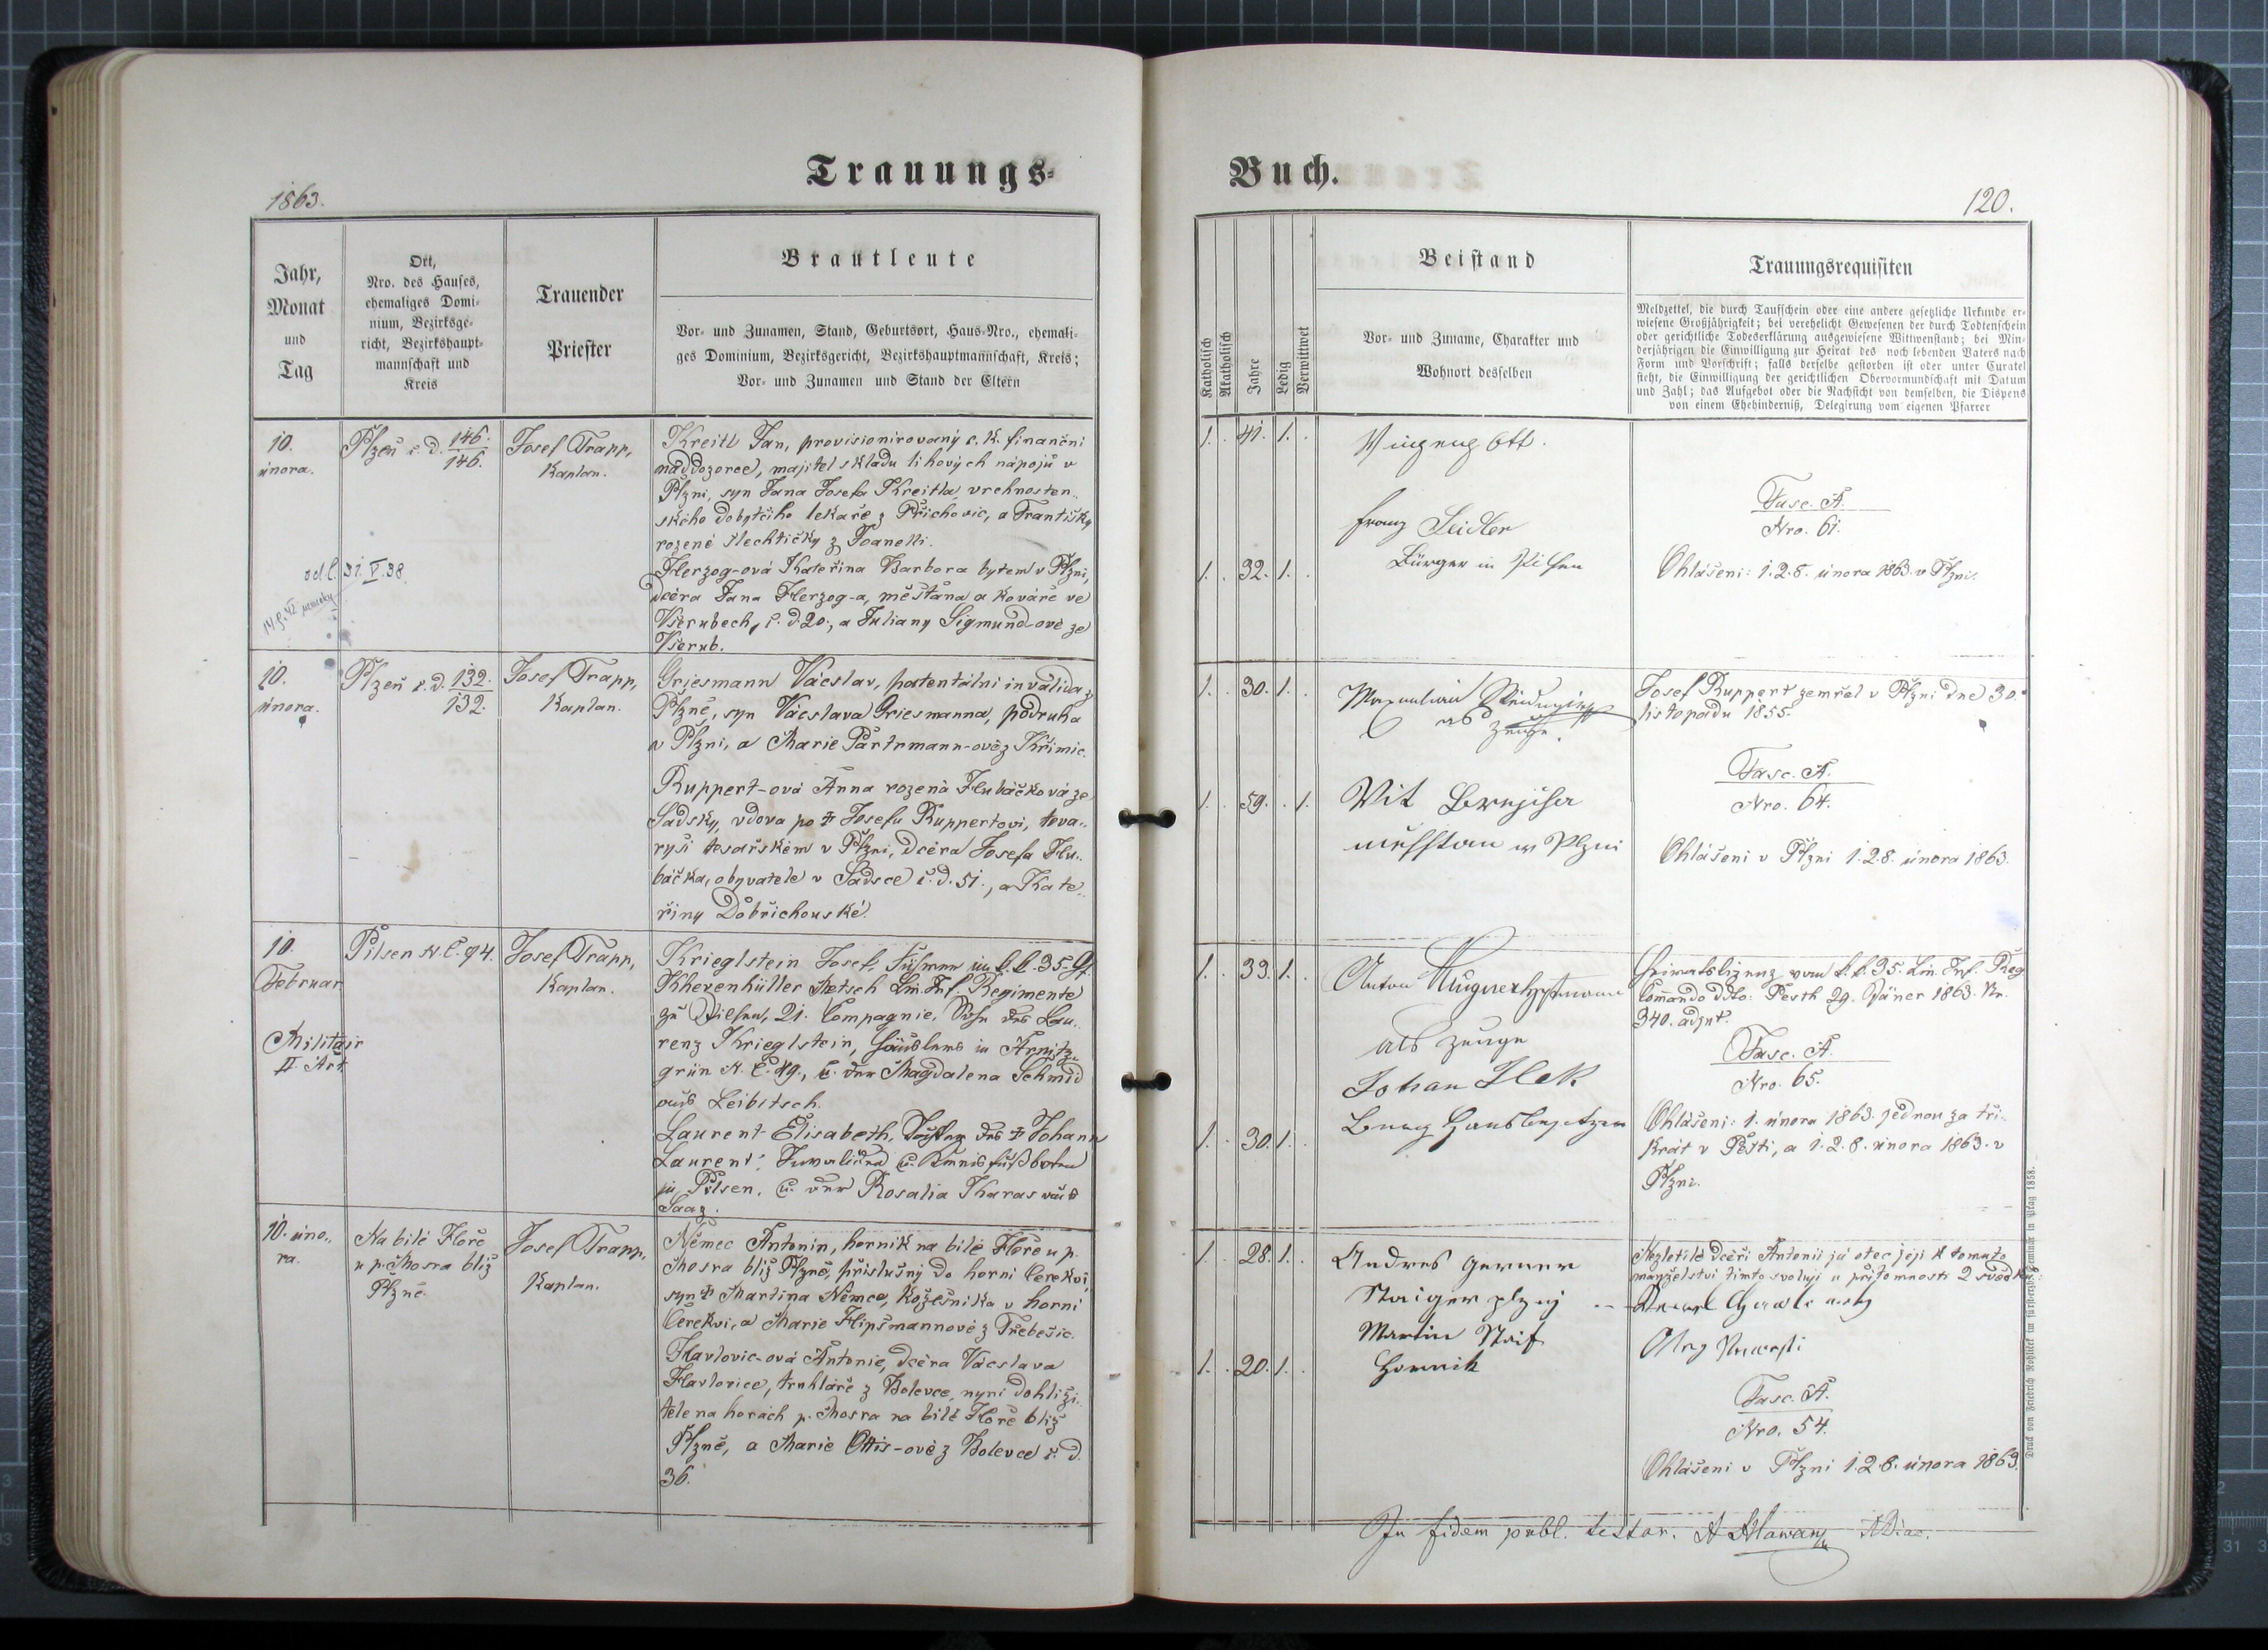 Trauungs-
1863.
Jahr,
Monat
und
Tag
Ort,
Nro. des Hauses,
ehemaliges Domi-
nium, Bezirksge-
richt, Bezirkshaupt-
mannschaft und
Kreis
Trauender
Priester
Brautleute
Vor- und Zunamen, Stand, Geburtsort, Haus-Nro., ehemali-
ges Dominium, Bezirksgericht, Bezirkshauptmannschaft, Kreis;
Vor- und Zunamen und Stand der Eltern
10.
února.
Plzeň č. d. 146.
146.
Josef Trapp,
Kaplan.
Kreitl Jan, provisionirovaný c. k. finanční
naddozorce, majitel skladu lihových nápojů v
Plzni, syn Jana Josefa Kreitla, vrchnosten-
ského dobytčího lekaře z Přichovic, a Františky
rozené šlechtičky z Joanelli.
odl. 31. V. 38.
Herzog-ová Kateřina Barbora bytem v Plzni,
dcéra Jana Herzog-a, měšťana a kováře ve
Všerubech, č. d. 20., a Juliany Sigmund-ové ze
Všerub.
10.
února.
Plzeň č. d. 132.
132.
Josef Trapp,
Kaplan.
Griesmann Vácslav, patentální invalida z
Plzně, syn Vácslava Griesmanna, podruha
v Plzni, a Marie Partrmann-ové z Křimic.
Ruppert-ová Anna rozená Hlubáčková ze
Sadsky, vdova po † Josefu Ruppertovi, tova-
ryši tesařském v Plzni, dcéra Josefa Hlu-
báčka, obyvatele v Sadsce č. d. 51., a Kate-
řiny Dobřichouské.
10.
Februar.
Militair
II. Art
Pilsen N. C. 94.
Josef Trapp,
Kaplan.
Krieglstein Josef, Führer im k. k. 35. G.
Khevenhüller Metsch Lin. Inf. Regimente
zu Pilsen, 21. Compagnie, Sohn des Lau-
renz Krieglstein, Häuslers in Arnitz-
grün N. C. 49., u. der Magdalena Schmid
aus Leibitsch.
Laurent Elisabeth, Tochter des † Johann
Laurent, Invaliden u. Kreisfußboten
in Pilsen, u. der Rosalia Karas aus
Saaz.
10. úno-
ra.
Na bílé Hoře
u p. Mosra blíž
Plzně.
Josef Trapp,
Kaplan.
Němec Antonin, horník na bílé Hoře u p.
Mosra blíž Plzně, příslušný do horní Cerekvi,
syn † Martina Němce, kožešníka v horní
Cerekvi, a Marie Flipšmannové z Třebešic.
Havlovic-ová Antonie, dcéra Vácslava
Havlovice, truhláře z Bolevce, nyní dohliži-
tele na horách p. Mosra na bílé Hoře blíž
Plzně, a Marie Ottis-ové z Bolevce č. d.
36.
Buch.
120.
Katholisch
Akatholisch
Jahre
Ledig
Verwittwet
Beistand
Vor- und Zuname, Charakter und
Wohnort desselben
Trauungsrequisiten
Meldzettel, die durch Taufschein oder eine andere gesetzliche Urkunde er-
wiesene Großjährigkeit; bei verehelicht Gewesenen der durch Todtenschein
oder gerichtliche Todeserklärung ausgewiesene Wittwenstand; bei Min-
derjährigen die Einwilligung zur Heirat des noch lebenden Vaters nach
Form und Vorschrift; falls derselbe gestorben ist oder unter Curatel
steht, die Einwilligung der gerichtlichen Obervormundschaft mit Datum
und Zahl; das Aufgebot oder die Nachsicht von demselben, die Dispens
von einem Ehehinderniß, Delegirung vom eigenen Pfarrer
1. . 41. 1. .
Ott.
Franz Seidler
Bürger in Pilsen
1. . 32. 1. .
Fasc. A.
Nro. 61.
Ohlášení: 1. 2. 8. února 1863. v Plzni.
1. . 30. 1. .
Maxmilian
als Zeuge.
1. . 59. . 1.
Vit Brejcha
messtan w Plzni
Josef Ruppert zemřel v Plzni dne 30.
listopadu 1855.
Fasc. A.
Nro. 64.
Ohlášení v Plzni 1. 2. 8. února 1863.
1. . 33. 1. .
Anton
als Zeuge
Johan Ilek
1. . 30. 1. .
Hausbesitzer
Heiratslizenz vom k. k. 35. Lin. Inf. Reg
Commando ddto: Pesth 29. Jäner 1863. Nr.
340. adjut.
Fasc. A.
Nro. 65.
Ohlášení: 1. února 1863. jednou za tři-
krát v Pešti, a 1. 2. 8. února 1863. v
Plzni.
1. . 28. 1. .
Andres Gerner
Staiger
Martin Staif
1. . 20. 1. .
Hornik
Nezletilé dceři Antonii já otec její k tomuto
manželství tímto svoluji u přítomnosti 2 svědků:
Fasc. A.
Nro. 54.
Ohlášení v Plzni 1. 2. 8. února 1863.
In fidem publ. testor.
Druck von Friedrich Rohliček im fürsterzb. Seminär in Prag 1858.